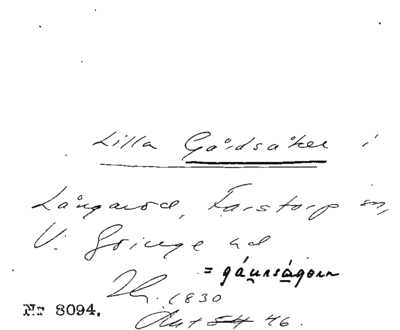 Lilla Gårdsåker i
Långaröd, Farstorp sn,
V. Göinge hd
= gáurságorn
1830
Nr 8094.
Akt 46.